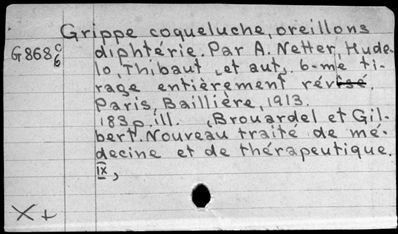 Grippe coqueluche, oreillons
G868 c6 diphtérie. Par A. Netter, Hude-
lo, Thibaut et aut. 6-me ti-
rage entièrement révisé.
Paris, Baillière, 1913.
183p. ill. (Brouardel et Gil-
bert. Nouveau traité de mé-
decine et de thérapeutique.
IX,
X+